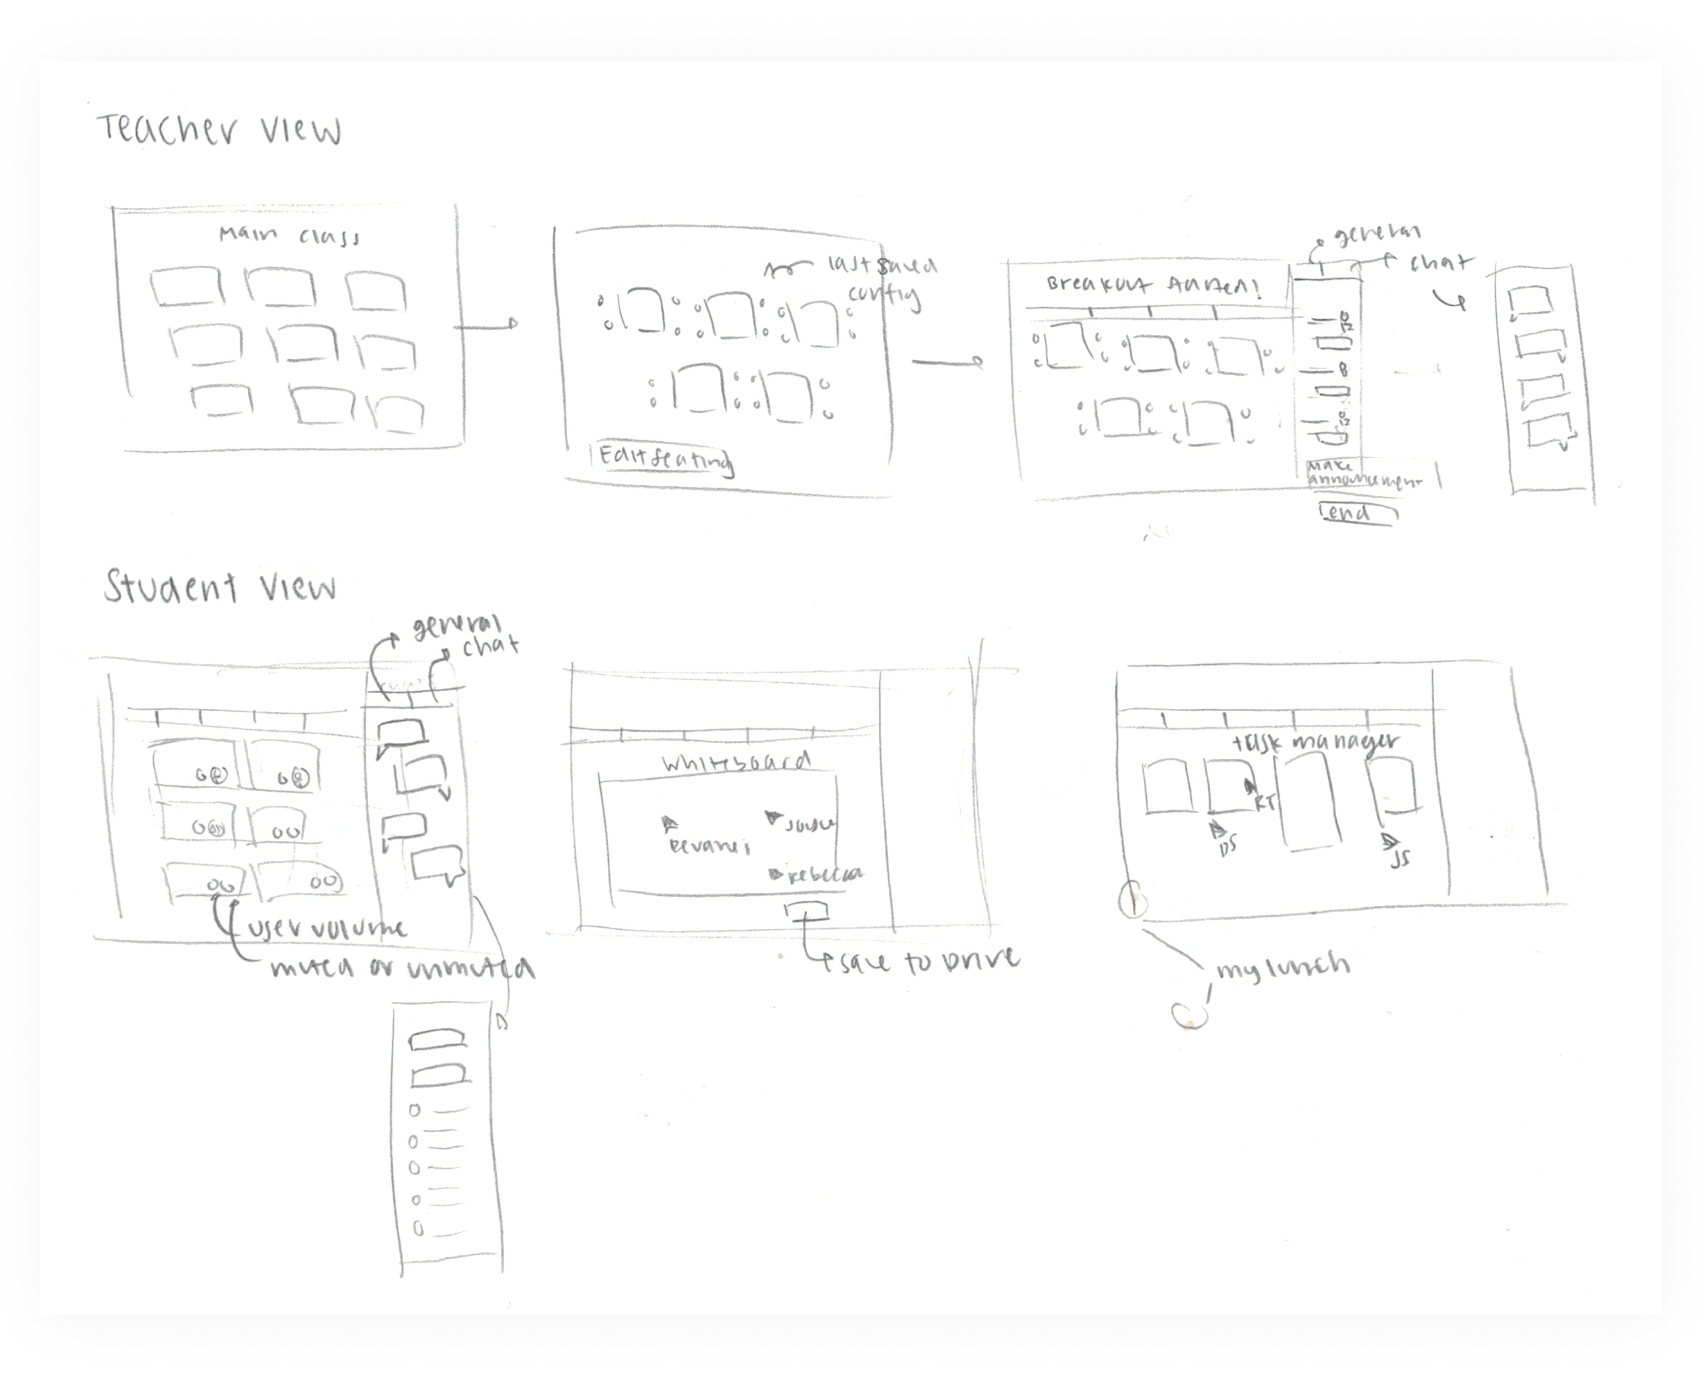 Teacher View
Main class
last saved
config
Edit seating
Breakout
general
chat
Make
announcement
end
Student View
general
chat
user volume
muted or unmuted
Whiteboard
Rebecca
save to Drive
task manager
RT
DS
JS
my lunch